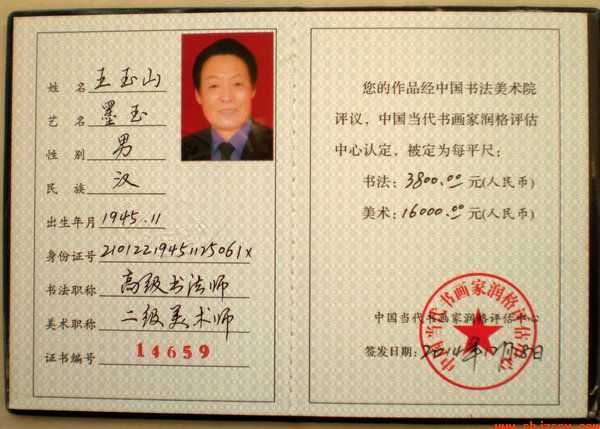 姓名 王玉山
艺名 墨玉
性别 男
民族 汉
出生年月 1945.11
身份证号 21012219451125061x
书法职称 高级书法师
美术职称 二级美术师
证书编号 14659
您的作品经中国书法美术院
评议，中国当代书画家润格评估
中心认定，被定为每平尺：
书法：3800.00元(人民币)
美术：16000.00元(人民币)
中国当代书画家润格评估中心
签发日期：2014年12月18日
中国当代书画家润格评估中心